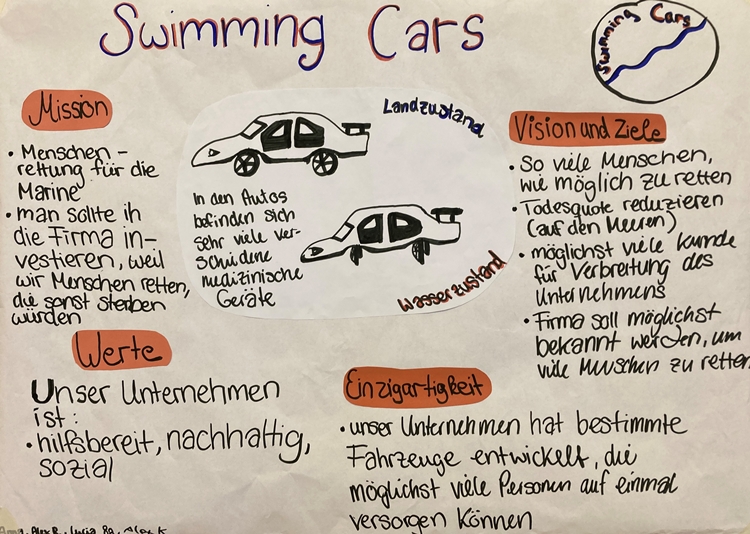 Swimming Cars
Swimming Cars
Mission
• Menschen-
rettung für die
Marine
• man sollte ih
die Firma in-
vestieren, weil
wir Menschen retten,
die sonst sterben
würden
Landzustand
In den Autos
befinden sich
sehr viele ver-
schuidene
medizinische
Geräte
Wasserzustand
Vision und Ziele
• So viele Menschen,
wie möglich zu retten
• Todesquote reduzieren
(auf den Meeren)
• möglichst viele kunde
für Verbreitung des
Unternehmens
• Firma soll möglichst
bekannt werden, um
viele Menschen zu retten
Werte
Unser Unternehmen
ist:
• hilfsbereit, nachhaltig,
sozial
Einzigartigkeit
• unser Unternehmen hat bestimmte
Fahrzeuge entwickelt, die
möglichst viele Personen auf einmal
versorgen können
Alex R., Lucia Ra, Alex K